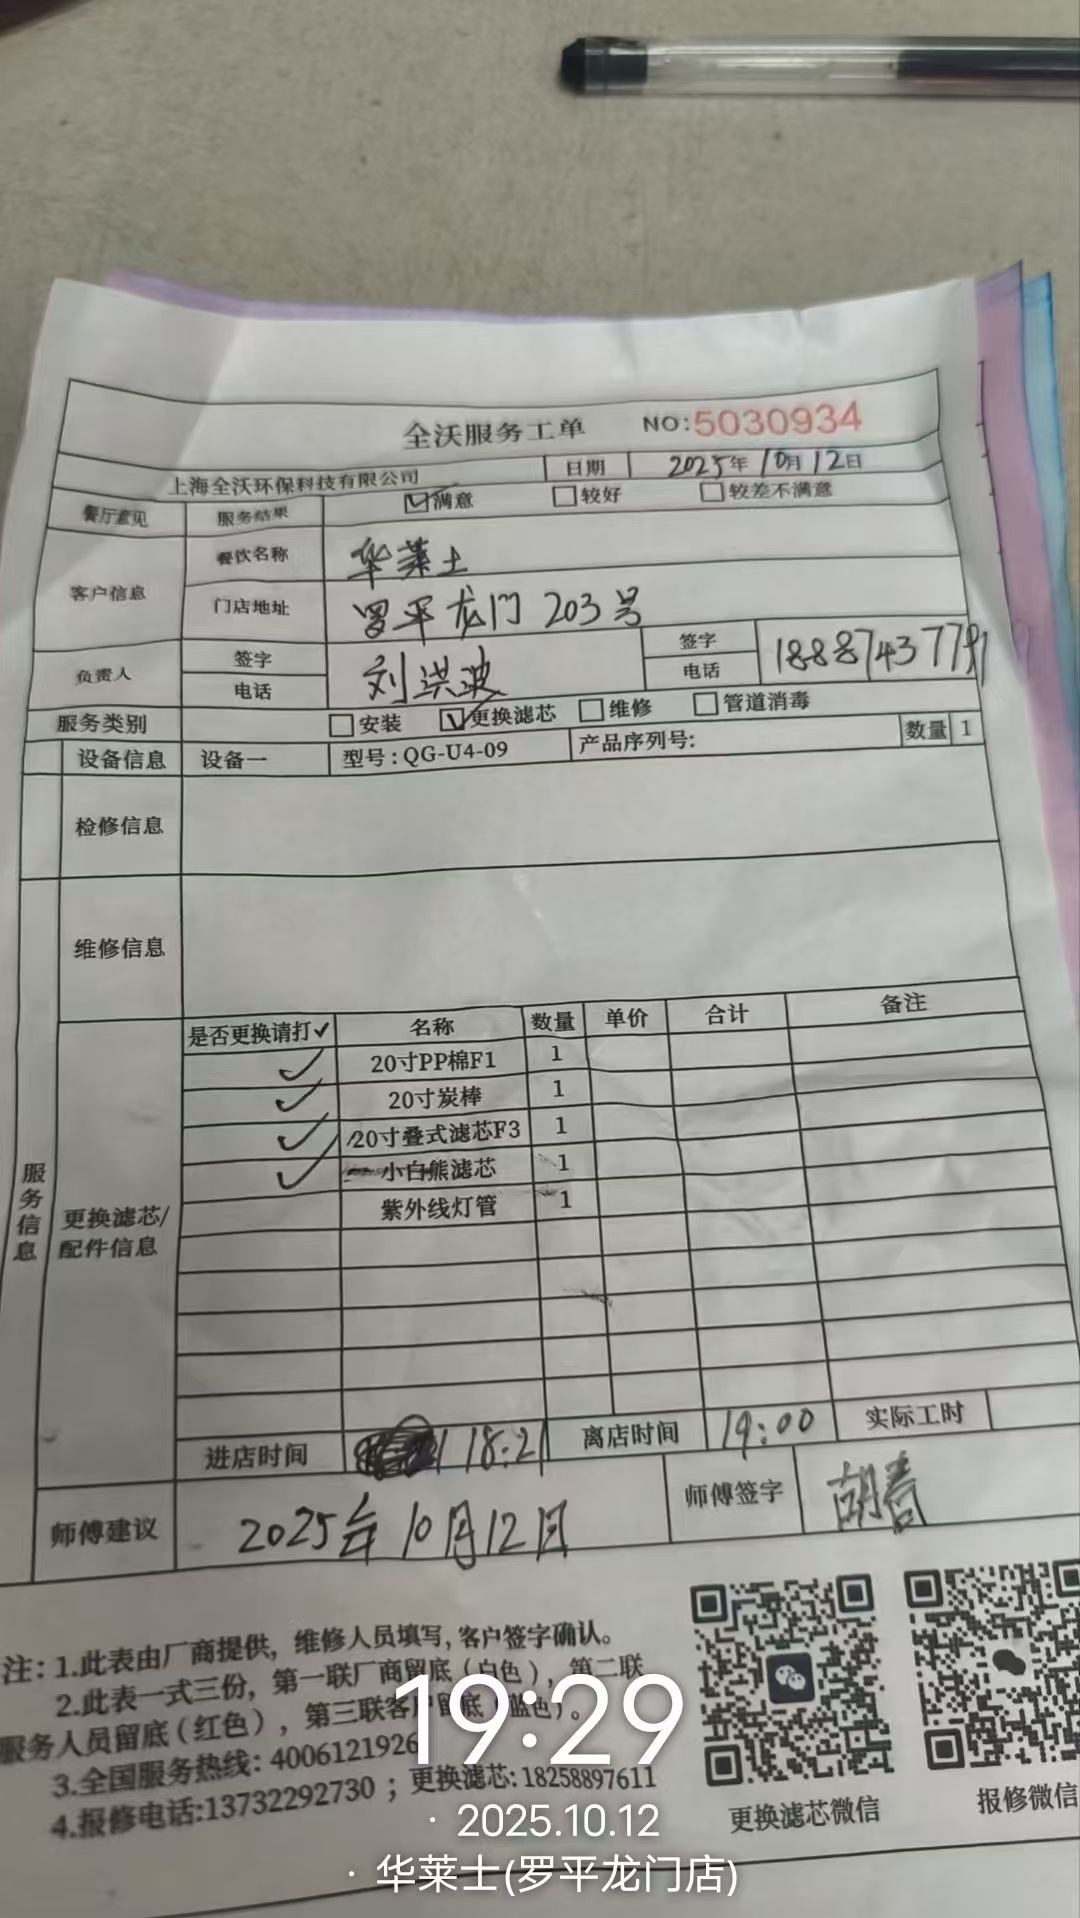 全沃服务工单 NO:5030934
上海全沃环保科技有限公司 日期 2025年10月12日
餐厅意见 服务结果 ☑满意 □较好 □较差不满意
客户信息 餐饮名称 华莱士
门店地址 罗平龙门203号
负责人 签字 电话 刘洪波 签字 电话 1888743779
服务类别 □安装 ☑更换滤芯 □维修 □管道消毒
设备信息 设备一 型号:QG-U4-09 产品序列号: 数量 1
检修信息
维修信息
服务信息
更换滤芯/配件信息
是否更换请打✓ 名称 数量 单价 合计 备注
✓ 20寸PP棉F1 1
✓ 20寸炭棒 1
✓ 20寸叠式滤芯F3 1
✓ 小白熊滤芯 1
紫外线灯管 1
进店时间 18:21 离店时间 19:00 实际工时
师傅建议 2025年10月12日 师傅签字
注:1.此表由厂商提供,维修人员填写,客户签字确认。
2.此表一式三份,第一联厂商留底(白色),第二联
服务人员留底(红色),第三联客户留底(蓝色)。
3.全国服务热线:4006121926
4.报修电话:13732292730;更换滤芯:18258897611
更换滤芯微信 报修微信
19:29
· 2025.10.12
· 华莱士(罗平龙门店)